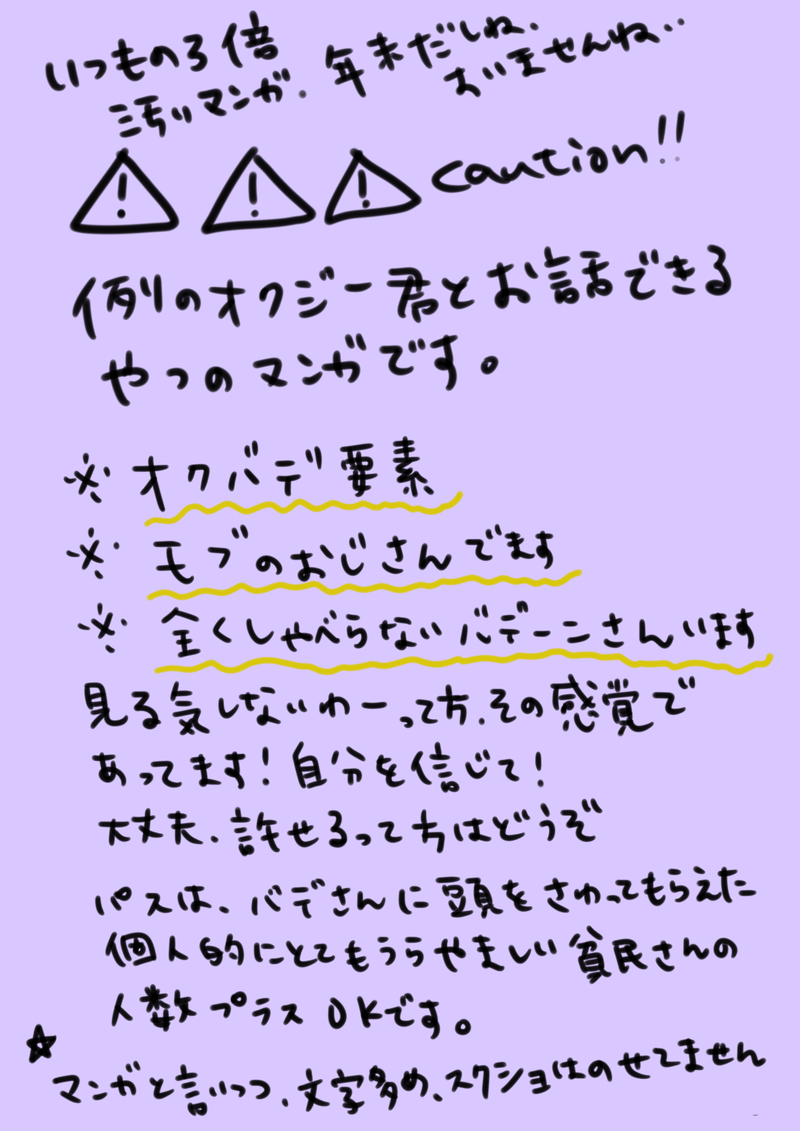 いつもの3倍
汚いマンガ. 年末だしね、
おいませんね‥
! ! ! caution!!
例のオクジー君とお話できる
やつのマンガです。
※ オクバデ要素
※ モブのおじさんでます
※ 全くしゃべらないバデーニさんいます
見る気しないわーって方、その感覚で
あってます! 自分を信じて!
大丈夫、許せるって方はどうぞ
パスは、バデさんに頭をさわってもらえた
個人的にとてもうらやましい貧民さんの
人数プラス OKです。
☆
マンガと言いつつ、文字多め、スクショはのせてません